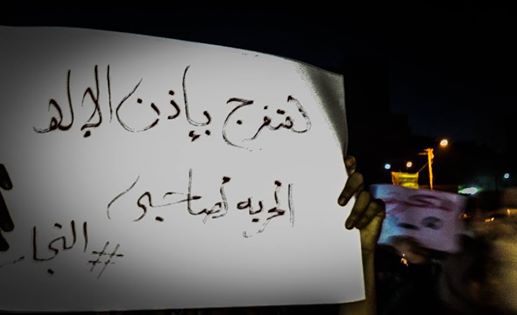 هتفرج بإذن الإله
الحريه لصاحبى
#النجار